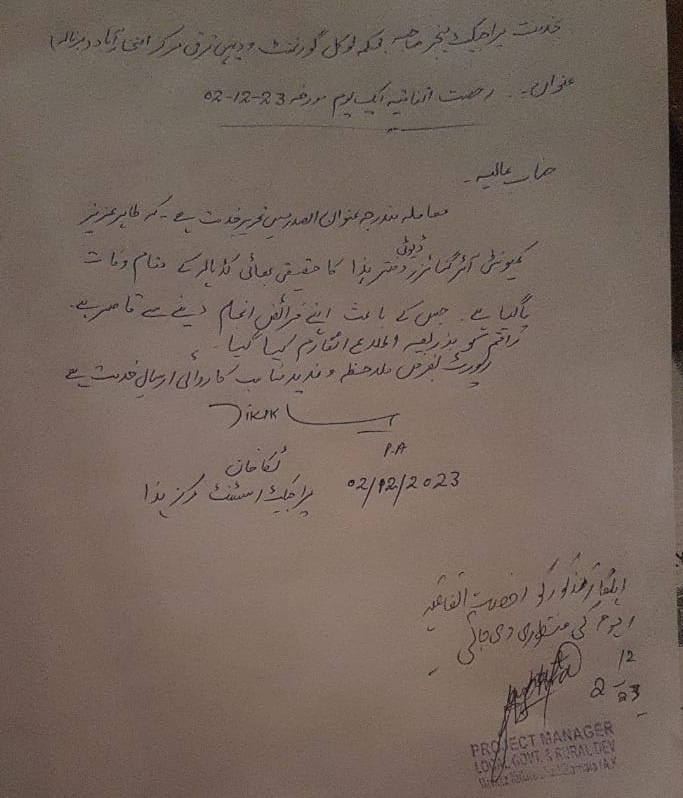 بخدمت پراجیکٹ منیجر صاحبہ محکمہ لوکل گورنمنٹ و دیہی ترقی مرکز افتخار آباد (برنالہ)
عنوان:- رخصت اتفاقیہ ایک یوم مورخہ 02-12-23
جناب عالیہ۔
معاملہ مندرجہ عنوان الصدر میں تحریر خدمت ہے۔ کہ طاہر عزیز
کمیونٹی آرگنائزر دفتر ہذا کا حقیقی بھائی ڈیوٹی کے مقام وفات
پا گیا ہے۔ جس کے باعث اپنے فرائض انجام دینے سے قاصر ہے۔
راقم کو بذریعہ اطلاع کیا گیا۔
رپورٹ بغرض ملاحظہ و مزید مناسب کاروائی ارسال خدمت ہے
P.A
02/12/2023
خان
پراجیکٹ اسسٹنٹ مرکز ہذا
اہلکار مذکور کو رخصت اتفاقیہ
1 یوم کی منظوری دی جاتی
2 12 23
PROJECT MANAGER
LOCAL GOVT. & RURAL DEV